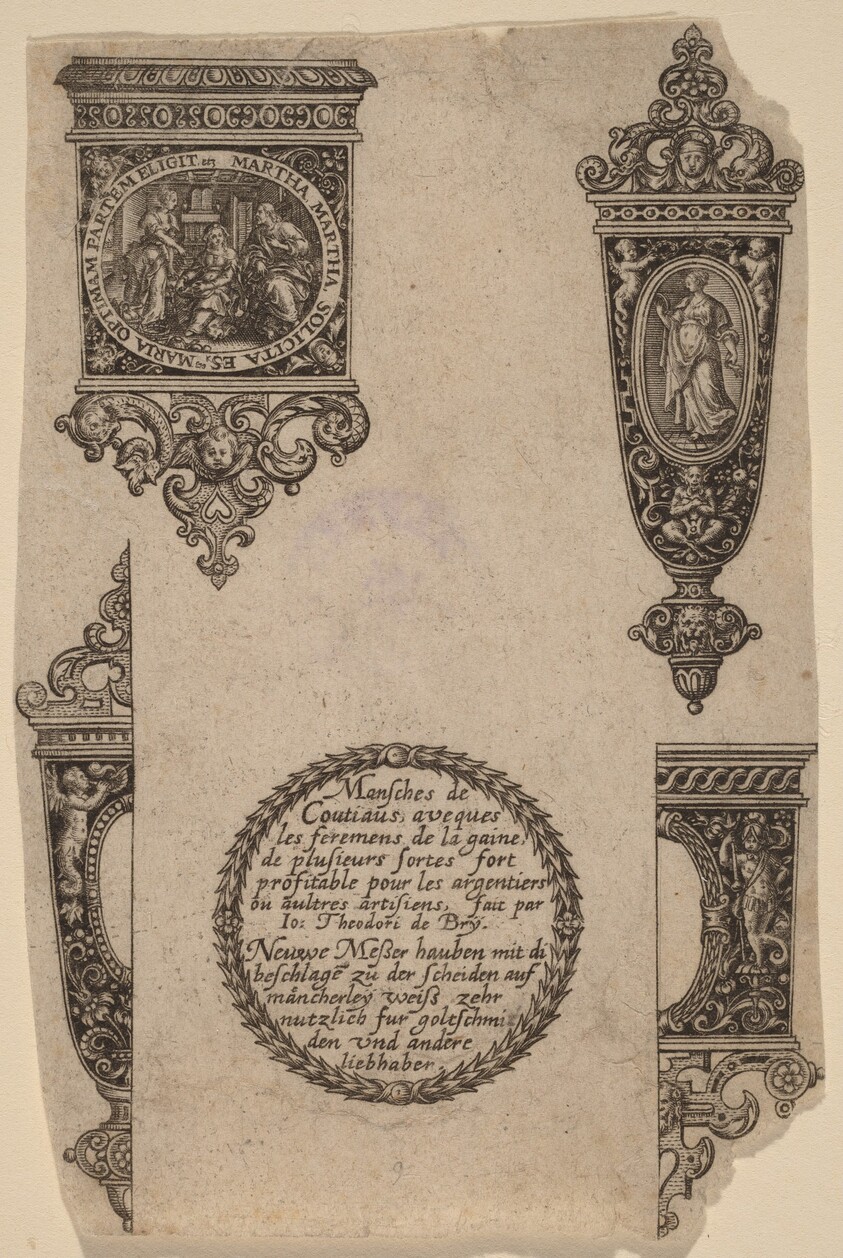 MARTHA MARTHA SOLICITA ES, MARIA OPTIMAM PARTEM ELIGIT etz
Mansches de
Coutiaus, aveques
les feremens de la gaine,
de plusieurs sortes fort
profitable pour les argentiers
ou aultres artisiens, fait par
Io: Theodori de Brÿ.
Neuwe Meßer hauben mit di
beschlagē zu der scheiden auf
mancherleÿ weiß zehr
nutzlich fur goltschmi
den vnd andere
liebhaber.
9